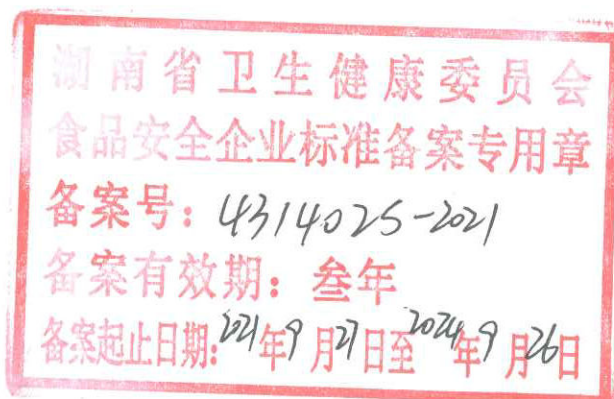 湖南省卫生健康委员会
食品安全企业标准备案专用章
备案号：4314025-2021
备案有效期：叁年
备案起止日期：2021年9月27日至2024年9月26日